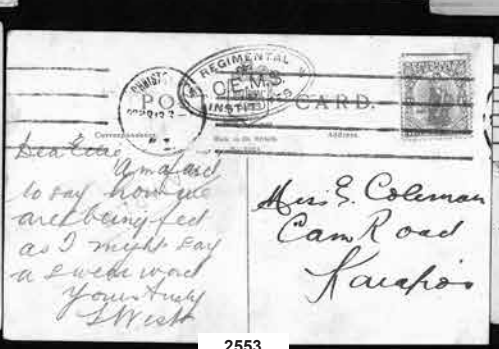 REGIMENTAL
C.E.M.S.
INSTITUTES
POST CARD.
Correspondence.
Address.
Dear Elsie
am afraid
to say how we
are being fed
as I might say
a swear word
Yours truly
S West
Miss E. Coleman
Cam Road
Kaiapoi
2553